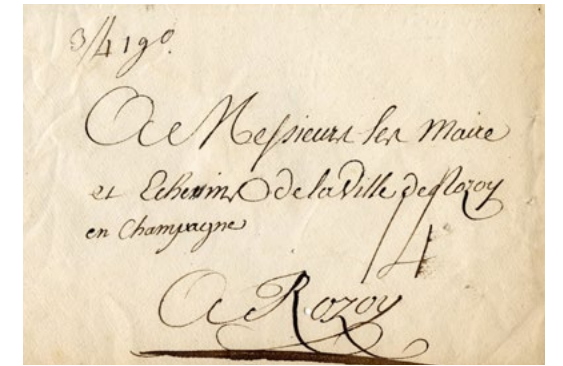 3/4 1go.
A Messieurs les Maire
et Echevins de la Ville de Rozoy
en Champagne
14
A Rozoy